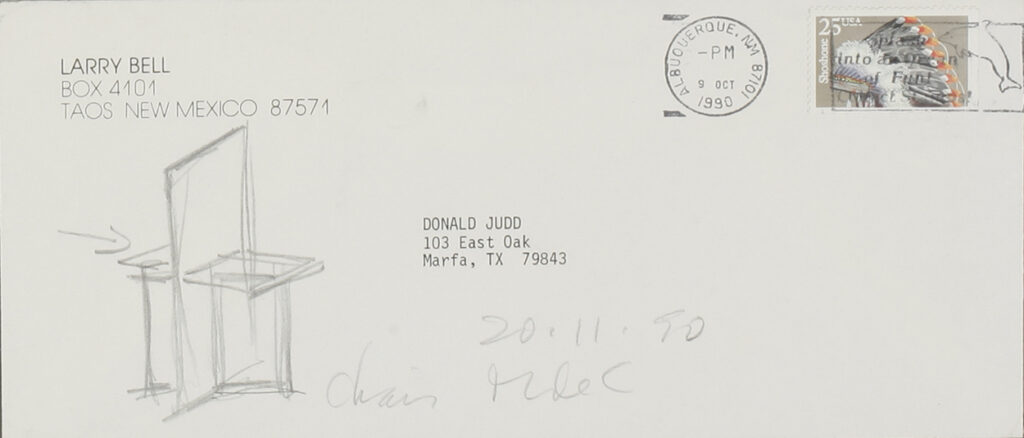 LARRY BELL
BOX 4101
TAOS NEW MEXICO 87571
ALBUQUERQUE, NM 87101
-PM
9 OCT
1990
25 USA
Shoshone
into an
of Fun!
DONALD JUDD
103 East Oak
Marfa, TX 79843
20.11.90
chair